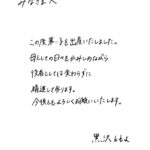 みなさまへ
この度第一子を出産いたしました。
母としての日々をかみしめながら
役者としては変わらずに
精進して参ります。
今後ともよろしくお願いいたします。
黒沢ともよ